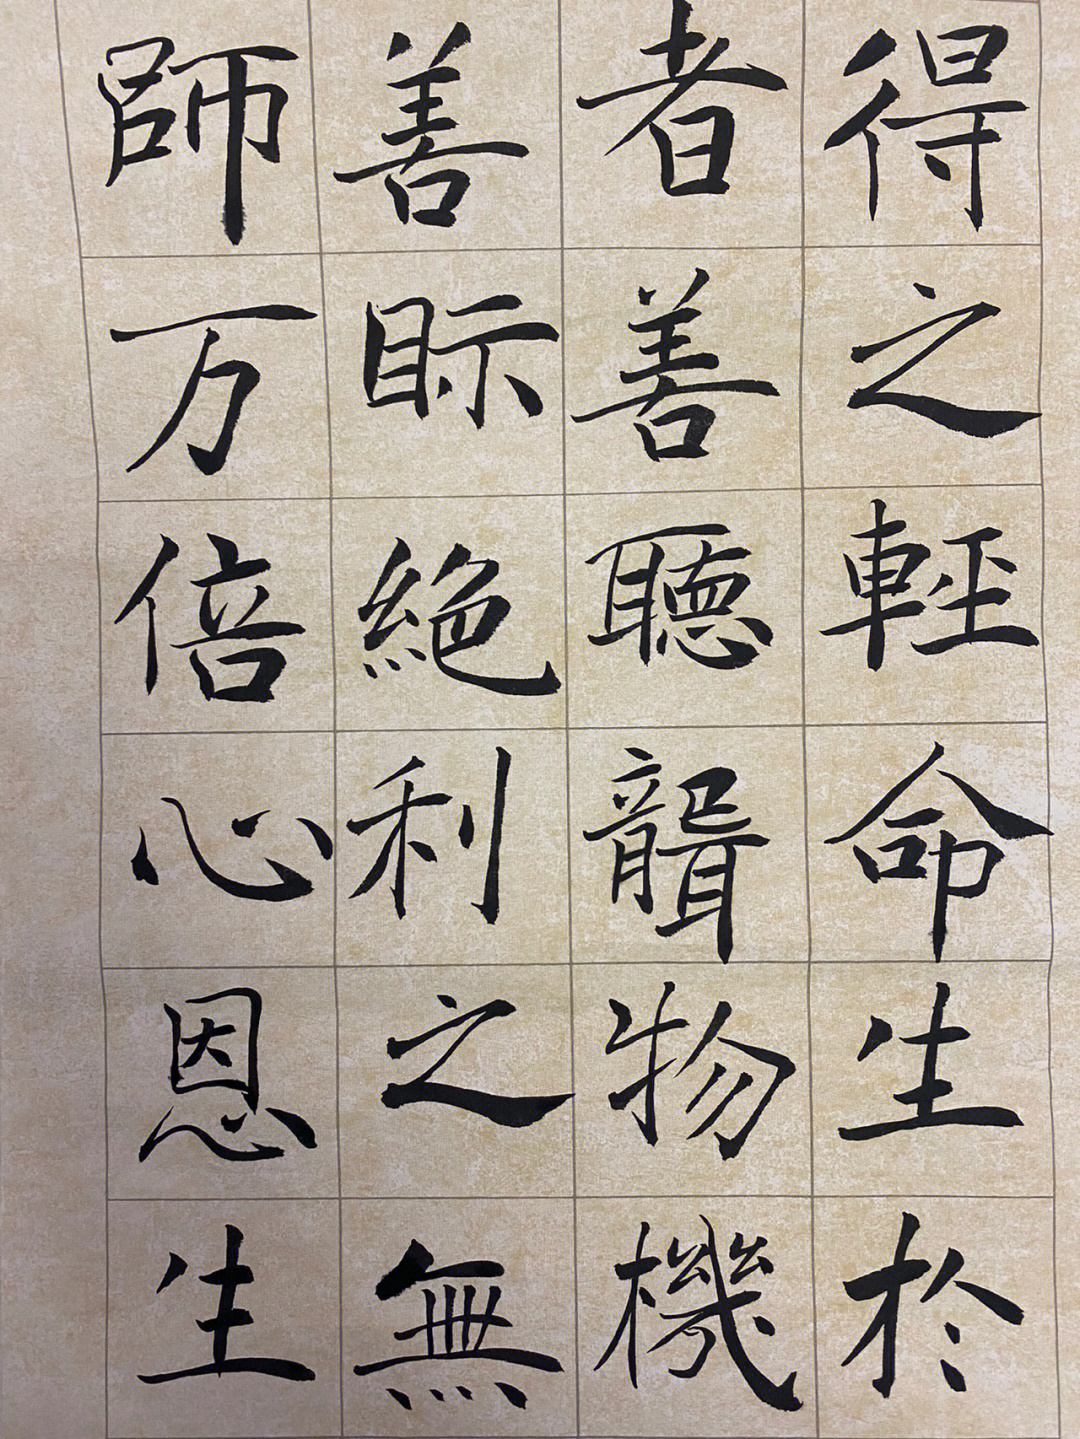 得之輕命生於
者善聴聾物機
善眎絶利之無
師万倍心恩生